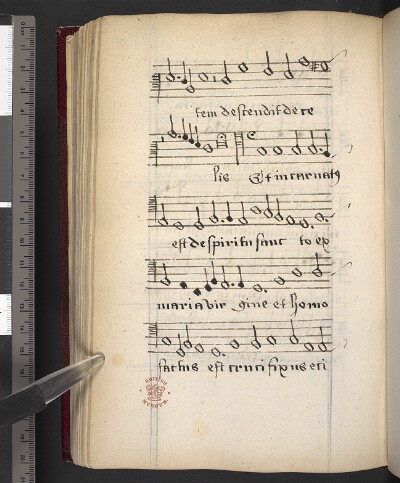 tem descendit de ce
lis Et incarnatꝯ
est de spiritu sanc to ex
maria vir gine et homo
factus est crucifixus eti
BRITISH MUSEUM